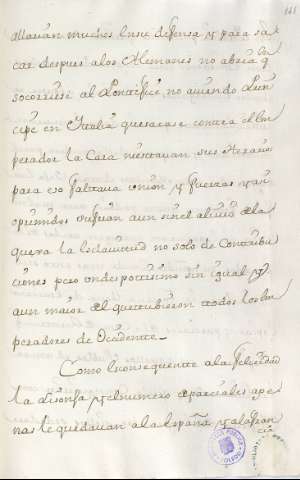 161
allavan muchos en su defensa, y para sa
car despues a los Alemanes no abria qn
socorriese al Pontifice, no aviendo Prin
cipe en Italia que sacase contra el Em
perador la Cara
para eso faltava union, y fuerzas y an
oprimidos sufrian aun sin el alivio de la
quexa la esclavitud no solo de Contribu
ciones pero un despotismo sin igual y
aun maior del que tubieron todos los Em
peradores de Occidente.
Como consequente a la felicidad
la lisonja y el numero de parciales ape
nas le quedavan a la España y a la Fran
cia